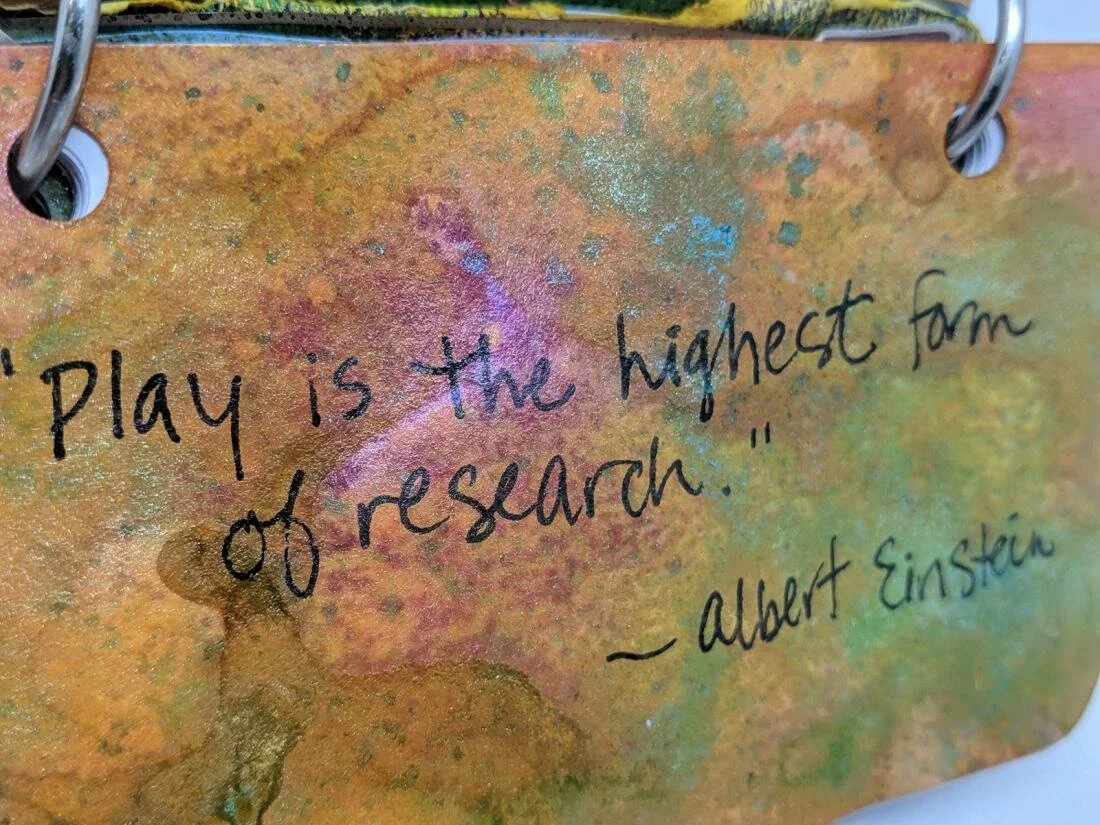 "Play is the highest form
of research."
~ albert Einstein